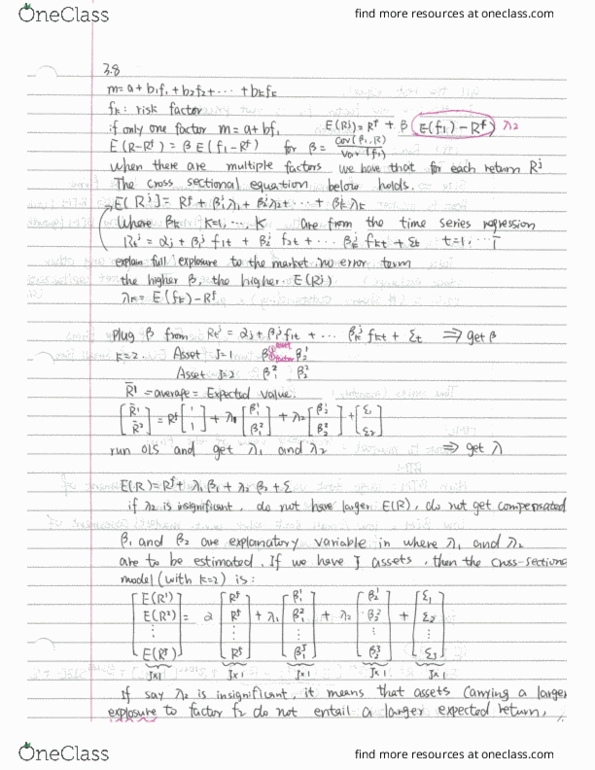 OneClass
find more resources at oneclass.com
3.8
m=a+b1f1+b2f2+⋯+bkfk
fk: risk factor
if only one factor m=a+bf1 E(Rj)=Rf+β(E(f1)-Rf) λ2
E(R-Rf)=βE(f1-Rf) for β=cov(f1,R)/Var(f1)
When there are multiple factors we have that for each return Rj
The cross sectional equation below holds.
E[Rj]=Rf+β1jλ1+β2jλ2+⋯+βkjλk
Where βk, k=1,⋯,K are from the time series regression
Rtj=αj+β1jf1t+β2jf2t+⋯βkjfkt+εt t=1,⋯T
explain full exposure to the market no error term
the higher β, the higher E(Rj)
λk=E(fk)-Rf
Plug β from Rtj=αj+β1jf1t+⋯βkjfkt+εt ⇒ get β
k=2. Asset J=1 β11 asset factor β21
Asset J=2 β12 β22
R̄1=average=Expected value.
[R̄1 R̄2]=Rf[1 1]+λ1[β11 β12]+λ2[β21 β22]+[ε1 ε2]
run OLS and get λ1 and λ2 ⇒ get λ
E(R)=Rf+λ1β1+λ2β2+ε
if λ2 is insignificant, do not have larger E(R), do not get compensated
β1 and β2 are explanatory variable in where λ1 and λ2
are to be estimated. If we have J assets, then the cross-sectional
model (with k=2) is:
[E(R1) E(R2) ⋮ E(RJ)]=2[Rf Rf ⋮ Rf]+λ1[β11 β12 ⋮ β1J]+λ2[β21 β22 ⋮ β2J]+[ε1 ε2 ⋮ εJ]
J×1 J×1 J×1 J×1 J×1
If say λ2 is insignificant, it means that assets carrying a larger
explosure to factor f2 do not entail a larger expected return,
OneClass
find more resources at oneclass.com